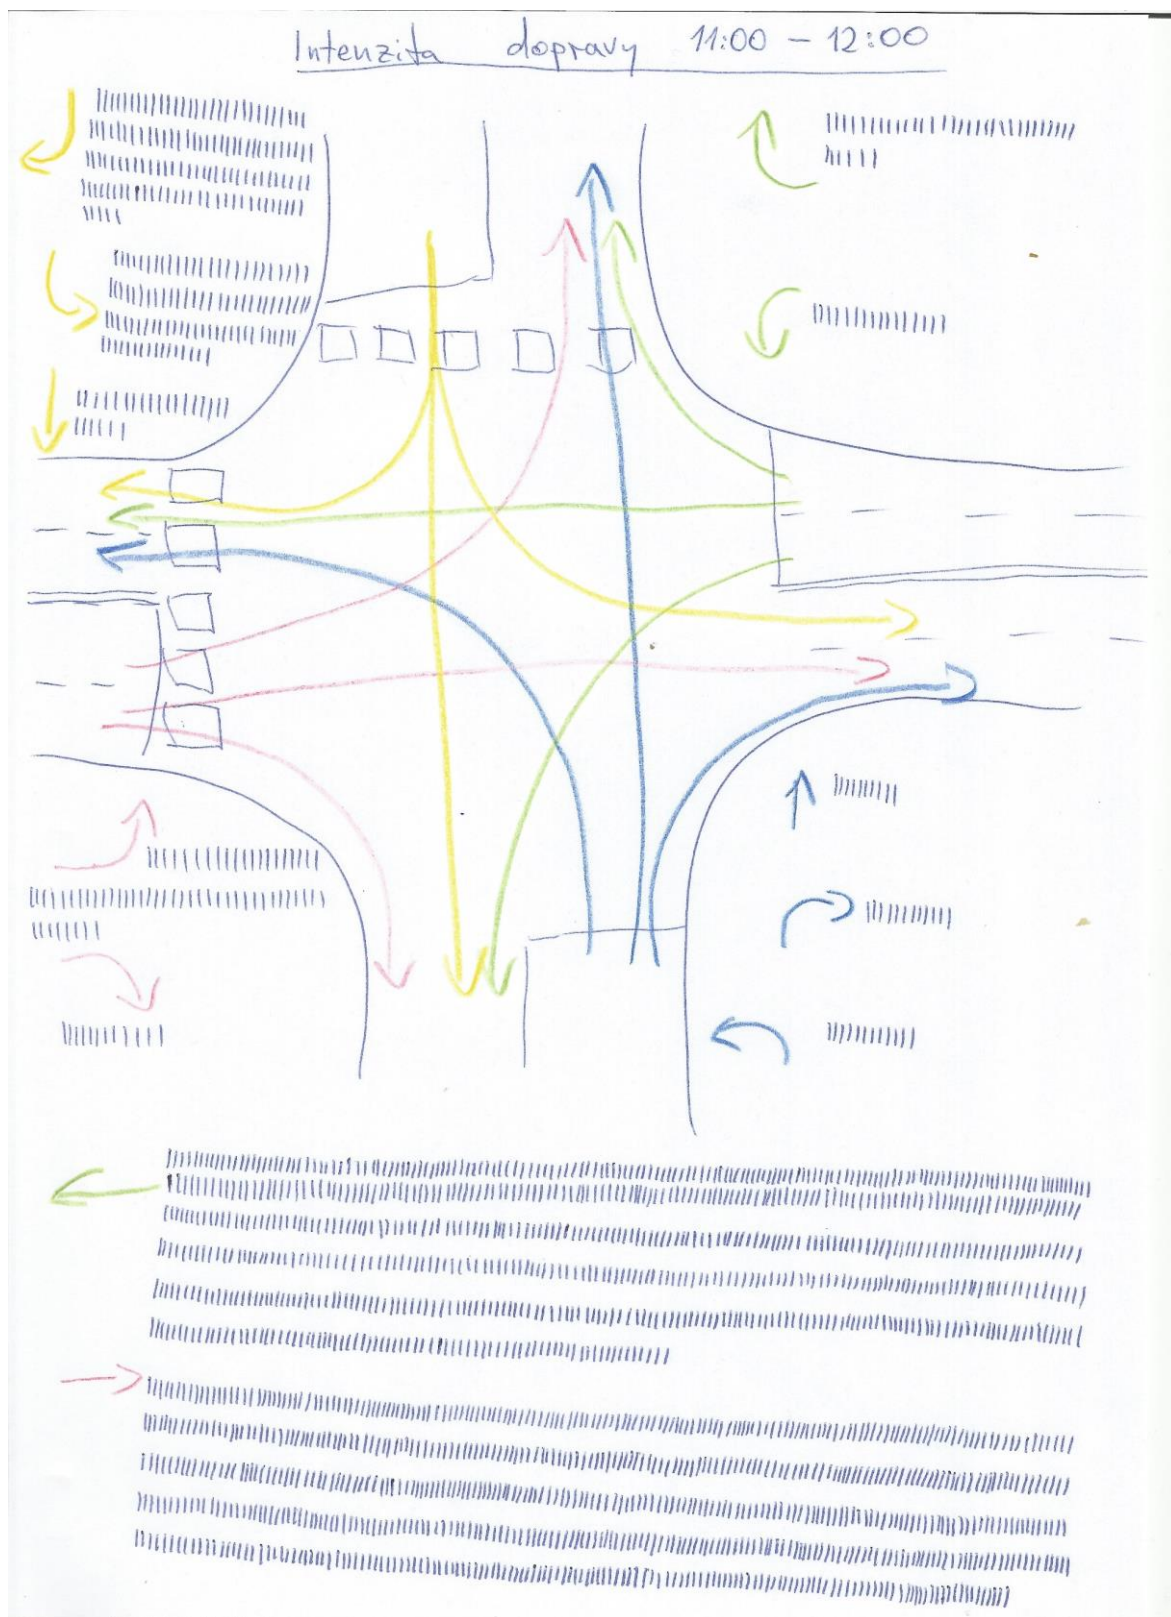 Intenzita dopravy 11:00 – 12:00